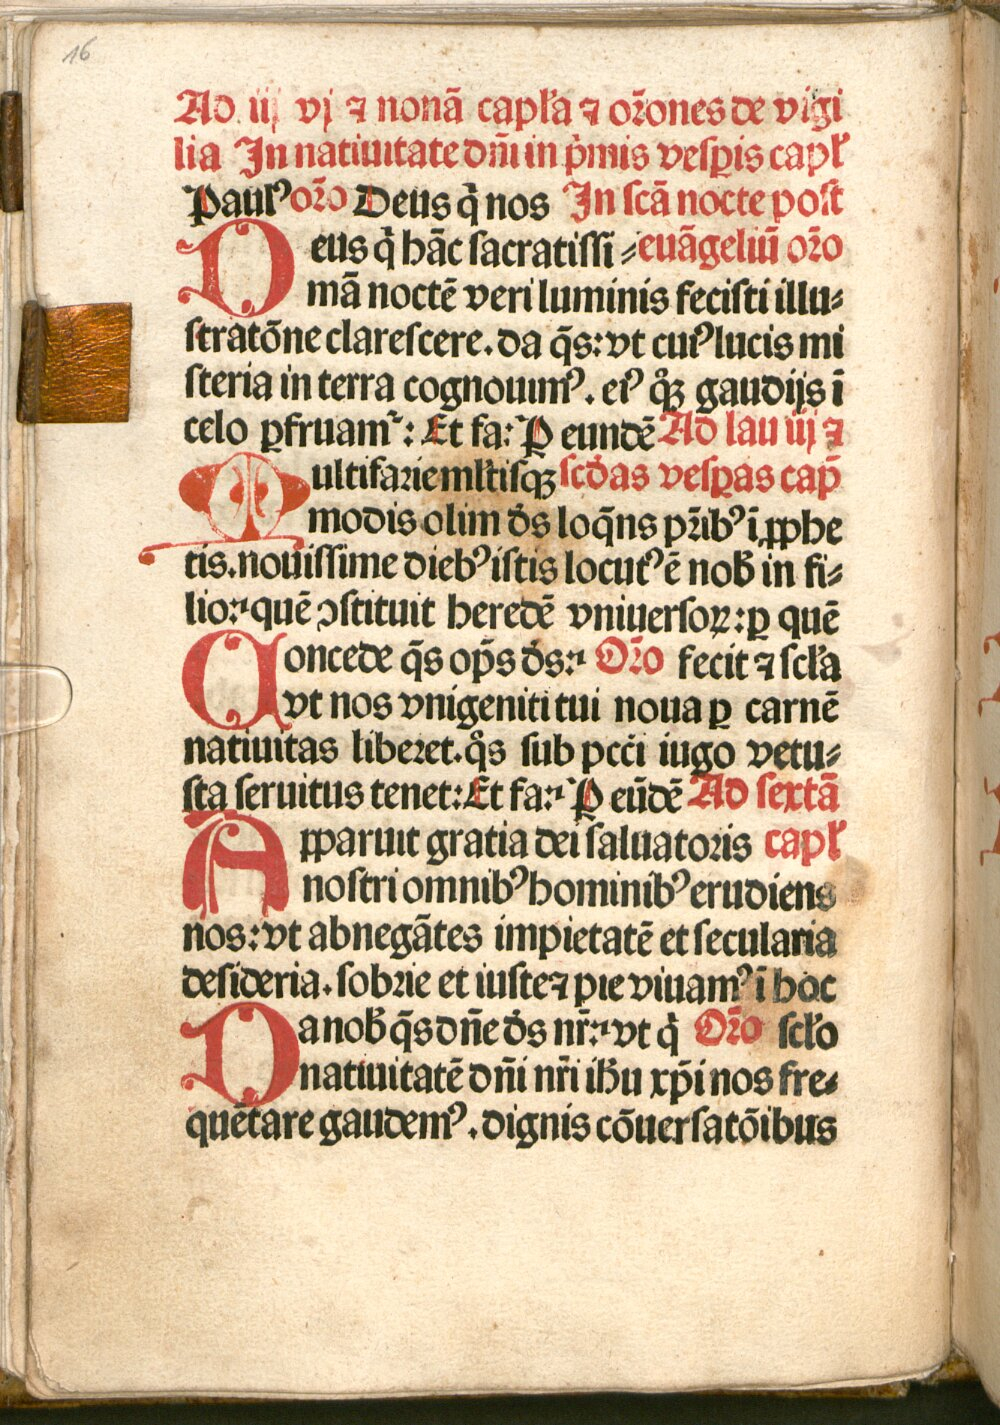 16
Ad iij vj ⁊ nonā capl'a ⁊ or̄ones de vigi
lia In natiuitate dn̄i in p̄mis vesp̄is capl'
Paulꝰ or̄o Deus q̄ nos In scā nocte post
Deus q̄ hāc sacratissi⸗ euāgeliū or̄o
mā noctē veri luminis fecisti illu⸗
stratōne clarescere. da q̄s: vt cuiꝰ lucis mi
steria in terra cognouimꝰ. eiꝰ q̊qꝫ gaudijs ī
celo ꝑfruamr̄: Et fa: P eundē Ad lau iij ⁊
Multifarie ml'tisqꝫ scd'as vesꝑas cap̄
modis olim d's loq̄ns pr̄ibꝰ ī ꝓphe
tis. nouissime diebꝰ istis locutꝰ ē nob' in fi⸗
lio: quē ꝯstituit heredē vniuersoꝝ: ꝑ quē
Concede q̄s op̄s d's: Or̄o fecit ⁊ scl'a
vt nos vnigeniti tui noua ꝑ carnē
natiuitas liberet. q̄s sub pcc̄i iugo vetu⸗
sta seruitus tenet: Et fa: P eūdē Ad sextā
Apparuit gratia dei saluatoris capl'
nostri omnibꝰ hominibꝰ erudiens
nos: vt abnegātes impietatē et secularia
desideria. sobrie et iuste ⁊ pie viuamꝰ ī hoc
Da nob' q̄s dn̄e d's nr̄: vt q̄ Or̄o scl'o
natiuitatē dn̄i nr̄i ih̄u xp̄i nos fre⸗
quētare gaudemꝰ. dignis cōuersatōibus